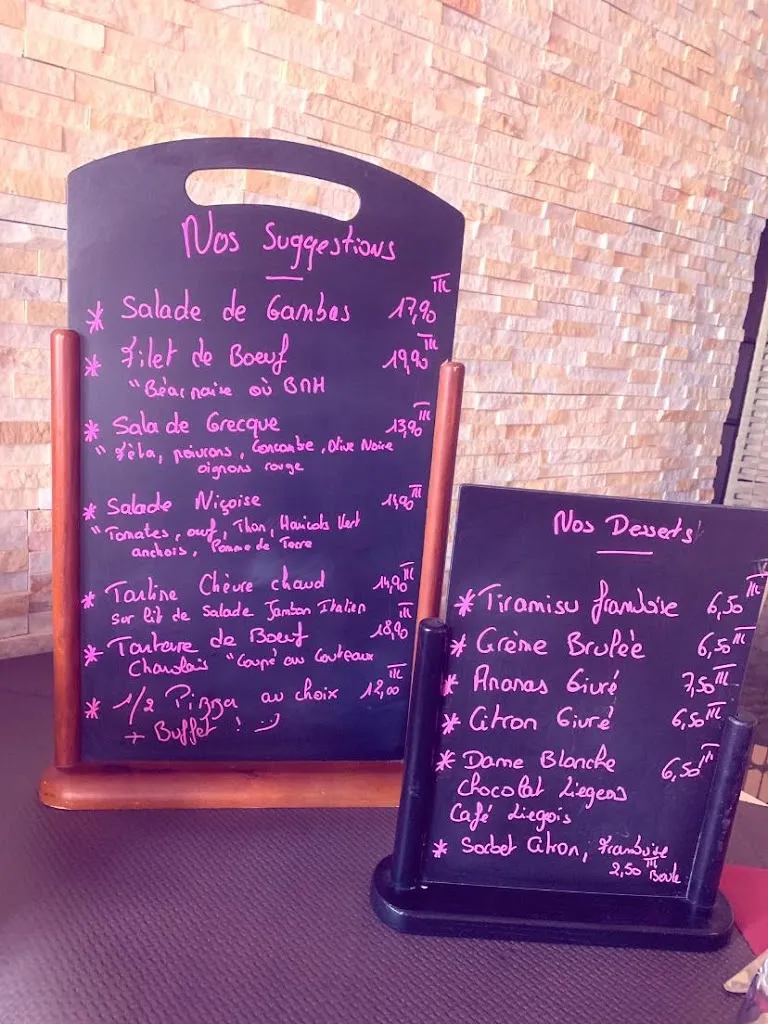 Nos Suggestions
* Salade de Gambas 17,90
* Filet de Boeuf 19,90
"Béarnaise où BMH
* Salade Grecque 13,90
"Féta, poivrons, Concombre, Olive Noire
oignons rouge
* Salade Niçoise
"Tomates, œuf, Thon, Haricots Vert
anchois, Pomme de Terre
* Tartine Chèvre chaud 14,90
sur lit de Salade Jambon Italien
* Tartare de Boeuf 18,90
Charolais "Coupé au Couteaux
* 1/2 Pizza au choix 12,00
+ Buffet !
Nos Desserts
* Tiramisu framboise 6,50
* Crème Brulée 6,50
* Ananas Givré 7,50
* Citron Givré 6,50
* Dame Blanche 6,50
Chocolat Liegeois
Café Liegois
* Sorbet Citron, Framboise
2,50 Boule